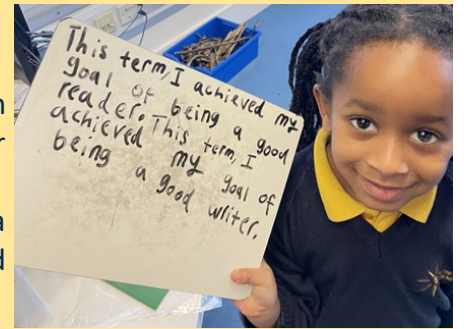 This term, I achieved my
goal of being a good
reader. This term, I
achieved my goal of
being a good writer.